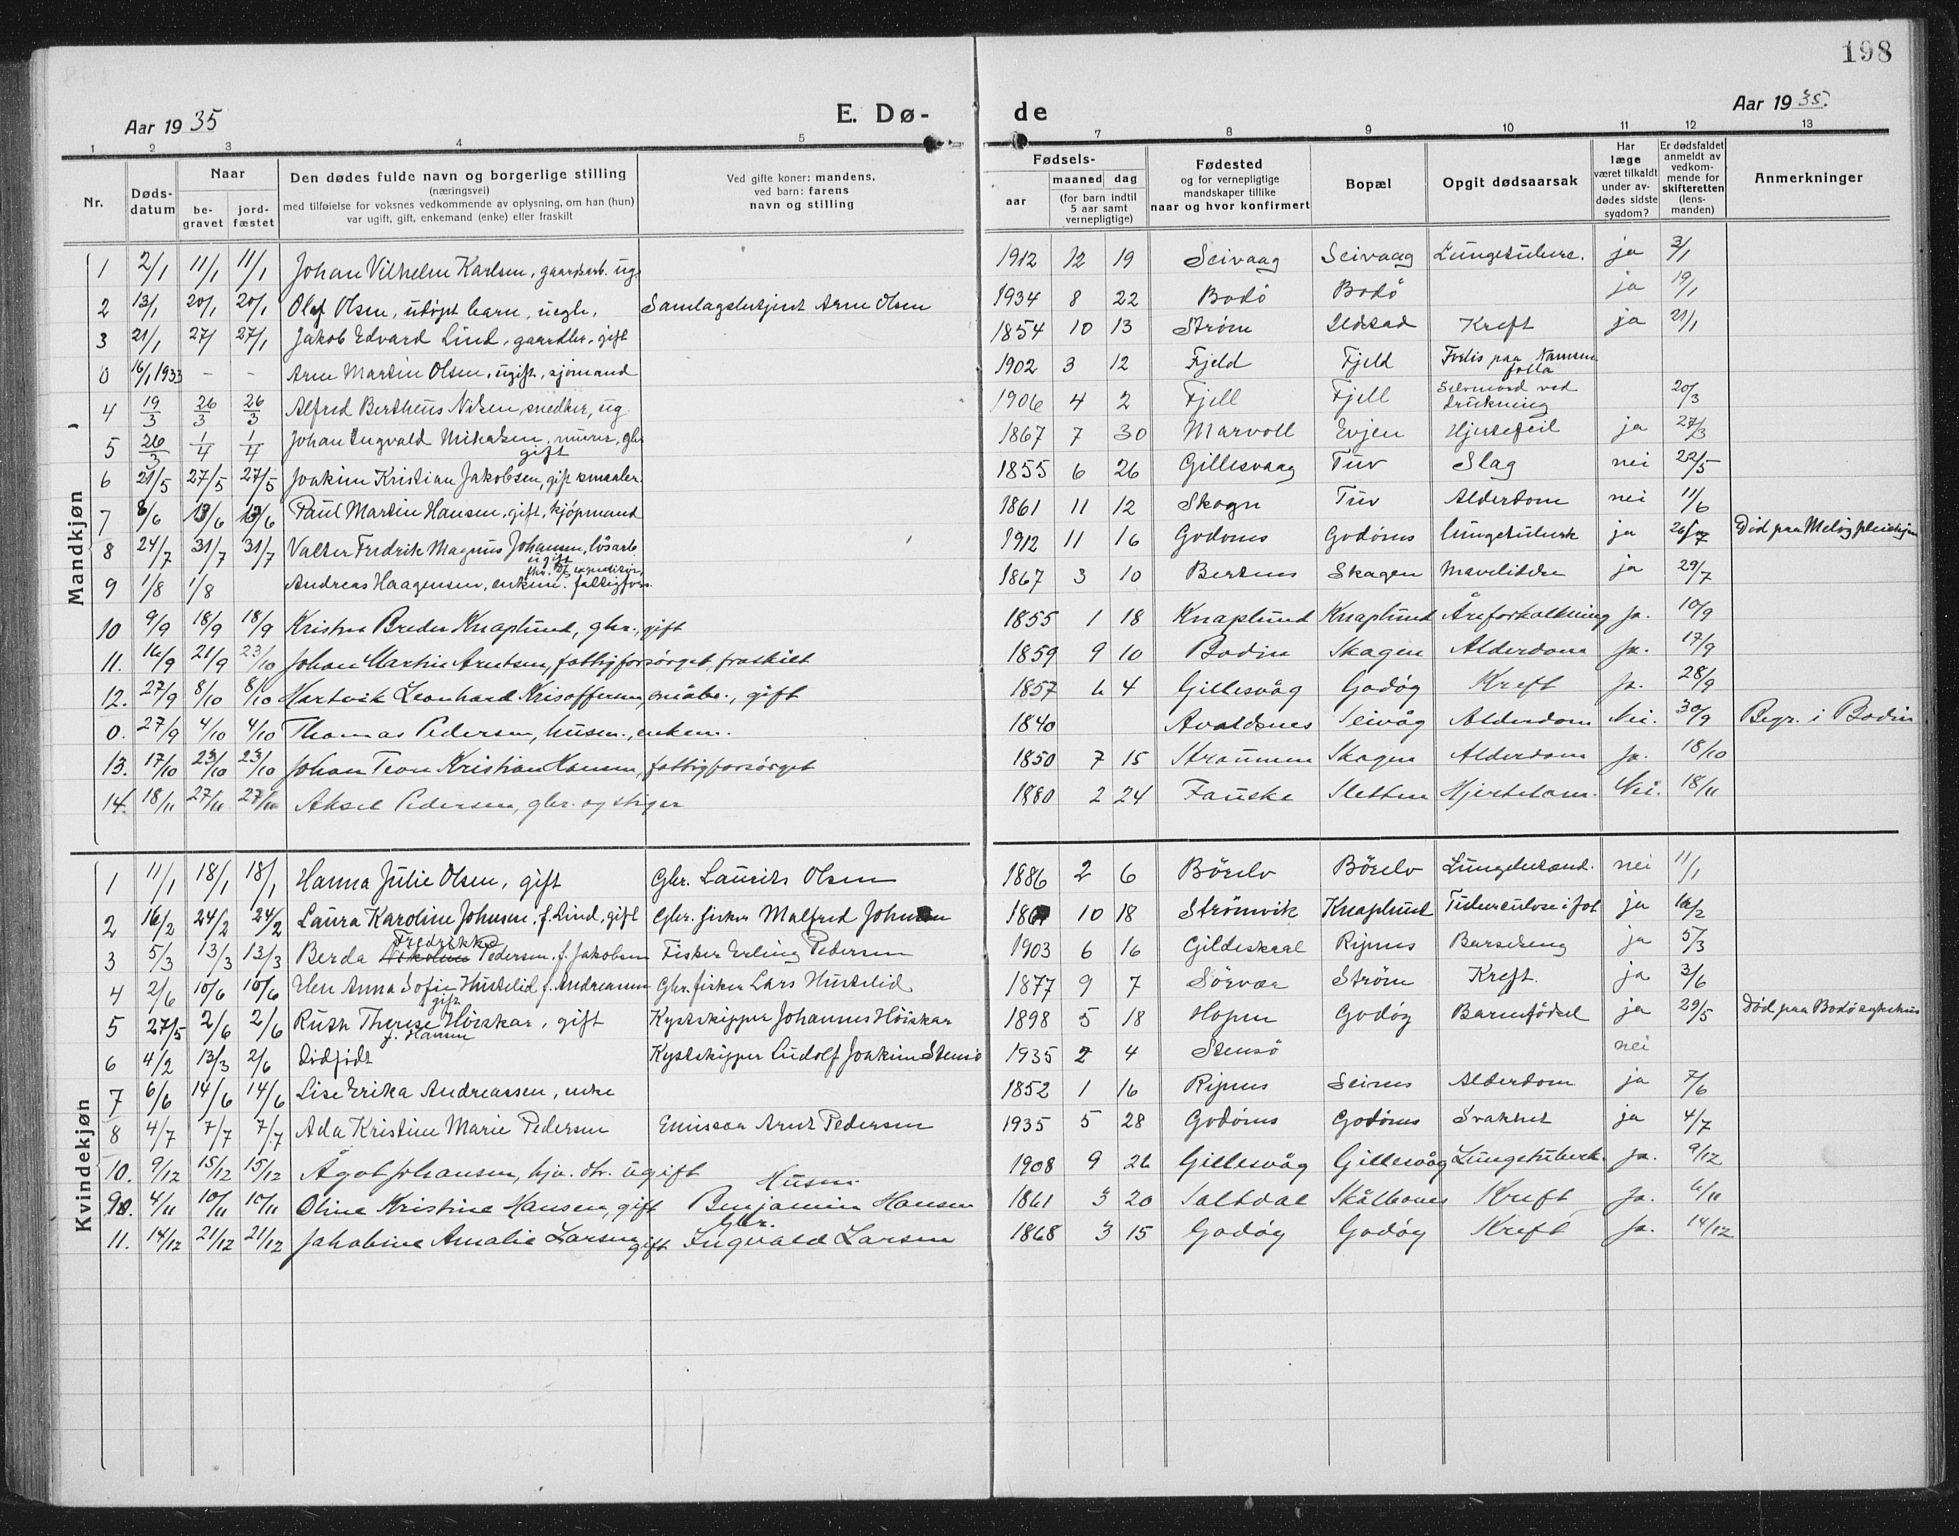 198
Aar 1935
E. Dø-
de
Aar 1935.
1 2 3 4 5 7 8 9 10 11 12 13
Nr.
Døds-
datum
Naar
be-
gravet
jord-
fæstet
Den dødes fulde navn og borgerlige stilling
(næringsvei)
med tilføielse for voksnes vedkommende av oplysning, om han (hun)
var ugift, gift, enkemand (enke) eller fraskilt
Ved gifte koner: mandens,
ved barn: farens
navn og stilling
Fødsels-
aar
maaned dag
(for barn indtil
5 aar samt
vernepligtige)
Fødested
og for vernepligtige
mandskaper tillike
naar og hvor konfirmert
Bopæl
Opgit dødsaarsak
Har
læge
været tilkaldt
under av-
dødes sidste
sygdom?
Er dødsfaldet
anmeldt av
vedkom-
mende for
skifteretten
(lens-
manden)
Anmerkninger
Mandkjøn
1 2/1 11/1 11/1 Johan Vilhelm Karlsen, gaardsarb. ug. 1912 12 19 Seivaag Seivaag Lungetuberc. ja 3/1
2 13/1 20/1 20/1 Olaf Olsen, udøpt barn, uegte, Samlagsbetjent Arne Olsen 1934 8 22 Bodö Bodö ja 19/1
3 21/1 27/ 27/1 Jakob Edvard Lind, gaardbr. gift 1854 10 13 Strøm Kreft ja 21/1
0 16/1 1933 - - Arne Martin Olsen, ugift, sjömand 1902 3 12 Fjeld Fjeld Forlis paa Namsen
folla
4 19/3 26/3 26/3 Alfred Bertheus Nilsen, snedker, ug. 1906 4 2 Fjell Fjell Selvmord ved
drukning 20/3
5 26/3 1/4 1/4 Johan Ingvald Mikalsen, murer, gbr.
gift 1867 7 30 Marvoll Evjen Hjertefeil ja 27/3
6 21/5 27/5 27/5 Joakim Kristian Jakobsen, gift 1855 6 26 Gillesvaag Tuv Slag nei 22/5
7 8/6 13/6 13/6 Paul Martin Hansen, gift, kjøpmand 1861 11 12 Skogn Tuv Alderdom nei 11/6
8 24/7 31/7 31/7 Valter Fredrik Magnus Johansen, lösarb.
ugift 1912 11 16 Godönes Godönes Lungetuberk ja 26/7 Död paa Melöy pleiehjem
9 1/8 1/8 Andreas Haagensen, enkem. fattigfors. 1867 3 10 Skagen Mavelidelse ja 29/7
10 9/9 18/9 18/9 Kristen Breder Knaplund, gbr., gift 1855 1 18 Knaplund Knaplund Åreforkalkning Ja. 10/9
11. 16/9 21/9 23/10 Johan Martin Arntsen, fattigforsørget, fraskilt 1859 9 10 Bodin Skagen Alderdom Ja. 17/9
12. 27/9 8/10 8/10 Hartvik Leonhard Krisoffersen, småbr., gift 1857 6 4 Gillesvåg Godøy Kreft Ja. 28/9
0. 27/9 4/10 4/10 Thomas Pedersen, husm., enkem. 1840 Avaldsnes Seivåg Alderdom Nei. 30/9 Begr. i Bodin
13. 17/10 23/10 23/10 Johan Teon Kristian Hansen, fattigforsørget 1850 7 15 Straumen Skagen Alderdom Ja. 18/10
14. 18/11 27/11 27/11 Aksel Pedersen, gbr. og stiger 1880 2 24 Fauske Sletten Hjertelam. Nei. 18/11
Kvindekjøn
1 11/1 18/1 18/1 Hanna Julie Olsen, gift Gbr. Laurits Olsen 1886 2 6 Börelv Börelv Lungebetænd. nei 11/1
2 16/2 24/2 24/2 Laura Karoline Johnsen, f. Lind, gift Gbr. fisker Malfred Johnsen 10 18 Strömvik Knaplund Tuberculose i fot ja 16/2
3 5/3 13/3 13/3 Berda Fredrikke Pedersen, f. Jakobsen Fisker Erling Pedersen 1903 6 16 Gildeskaal Ripnes Barselseng ja 5/3
4 2/6 10/6 10/6 Elen Anna Sofie Hustelid f. Andreassen
gift Gbr. fisker Lars Hustelid 1877 9 7 Sörvær Ström Kreft. ja 3/6
5 27/5 2/6 2/6 Ruth Therese Höiskar, gift
f. Hansen Kystskipper Johannes Höiskar 1898 5 18 Hopen Godöy Barnefödsel ja 29/5 Död paa Bodö sykehus
6 4/2 13/3 2/6 Dödfödt Kystskipper Ludolf Joakim Stensö 1935 2 4 Stensö nei
7 6/6 14/6 14/6 Lise Erika Andreassen, enke 1852 1 16 Ripnes Seines Alderdom ja 7/6
8 4/7 7/7 7/7 Ada Kristine Marie Pedersen Emissær Arnt Pedersen 1935 5 28 Godönes Godönes Svakhet ja 4/7
10. 9/12 15/12 15/12 Ågot Johansen, hjv. dtr. ugift 1908 9 26 Gillesvåg Gillesvåg Lungetuberk. Ja. 9/12
9. 4/11 10/11 10/11 Oline Kristine Hansen, gift Husm. Benjamin Hansen 1861 3 20 Saltdal Skålbones Kreft Ja. 6/11
11. 14/12 21/12 21/12 Jakobine Amalie Larsen gift Gbr. Ingvald Larsen 1868 3 15 Godøy Godøy Kreft Ja. 14/12